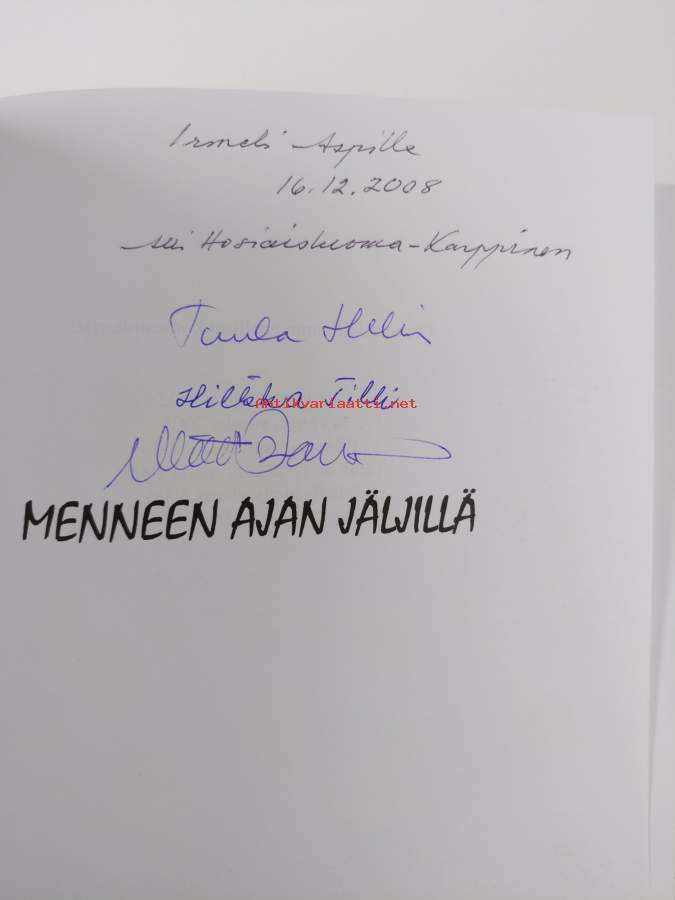 Irmeli Aspille
16.12.2008
Hosiaisluoma-Karppinen
Tuula Helin
Hilkka Tilli
antikvariaatti.net
MENNEEN AJAN JÄLJILLÄ